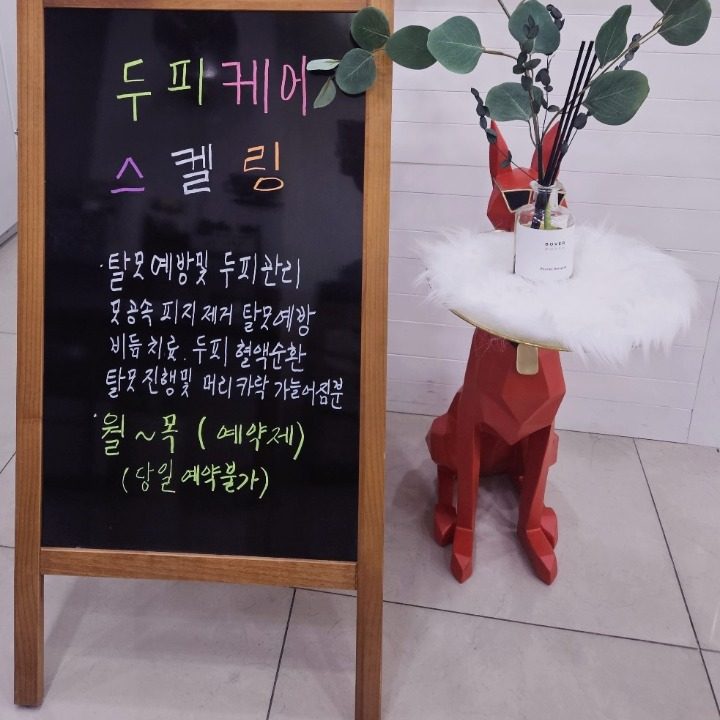 두피케어
스켈링
· 탈모예방및 두피관리
모공속 피지제거 탈모예방
비듬치료. 두피 혈액순환
탈모진행및 머리카락 가늘어짐분
· 월~목 (예약제)
(당일예약불가)